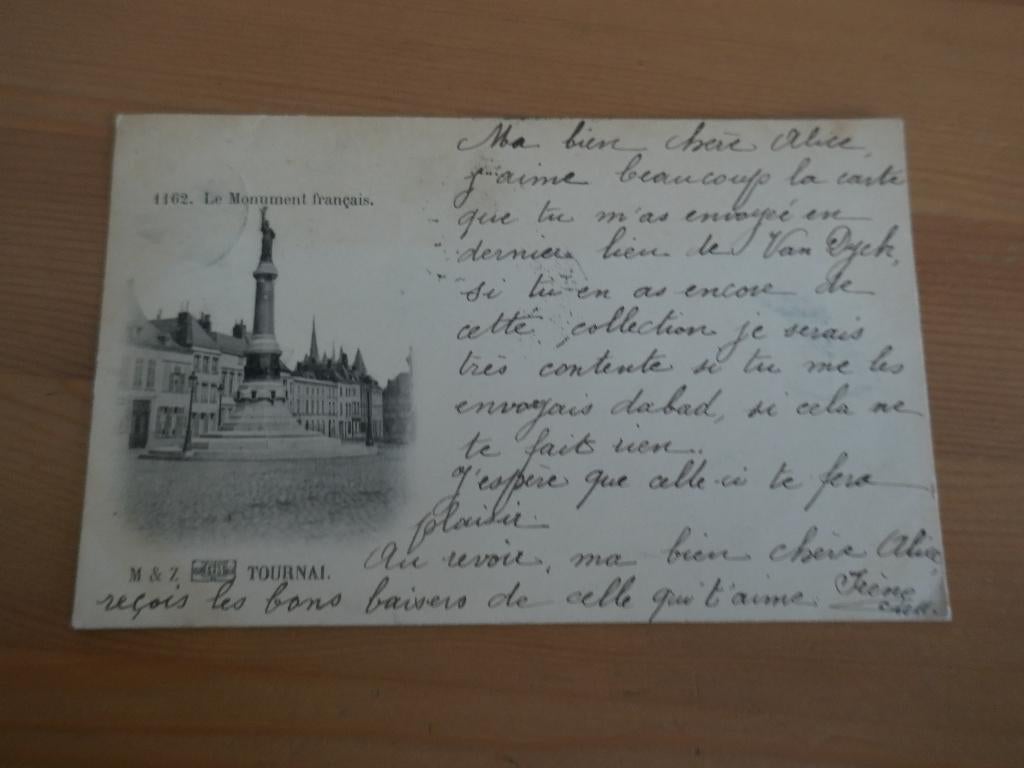 1162. Le Monument français.
Ma bien chère Alice,
j'aime beaucoup la carte
que tu m'as envoyée en
dernier lieu de Van Dyck,
si tu en as encore de
cette collection je serais
très contente si tu me les
envoyais dabad, si cela ne
te fait rien.
J'espère que celle-ci te fera
plaisir.
Au revoir, ma bien chère Alice
reçois les bons baisers de celle qui t'aime.
Irène
M & Z TOURNAI.